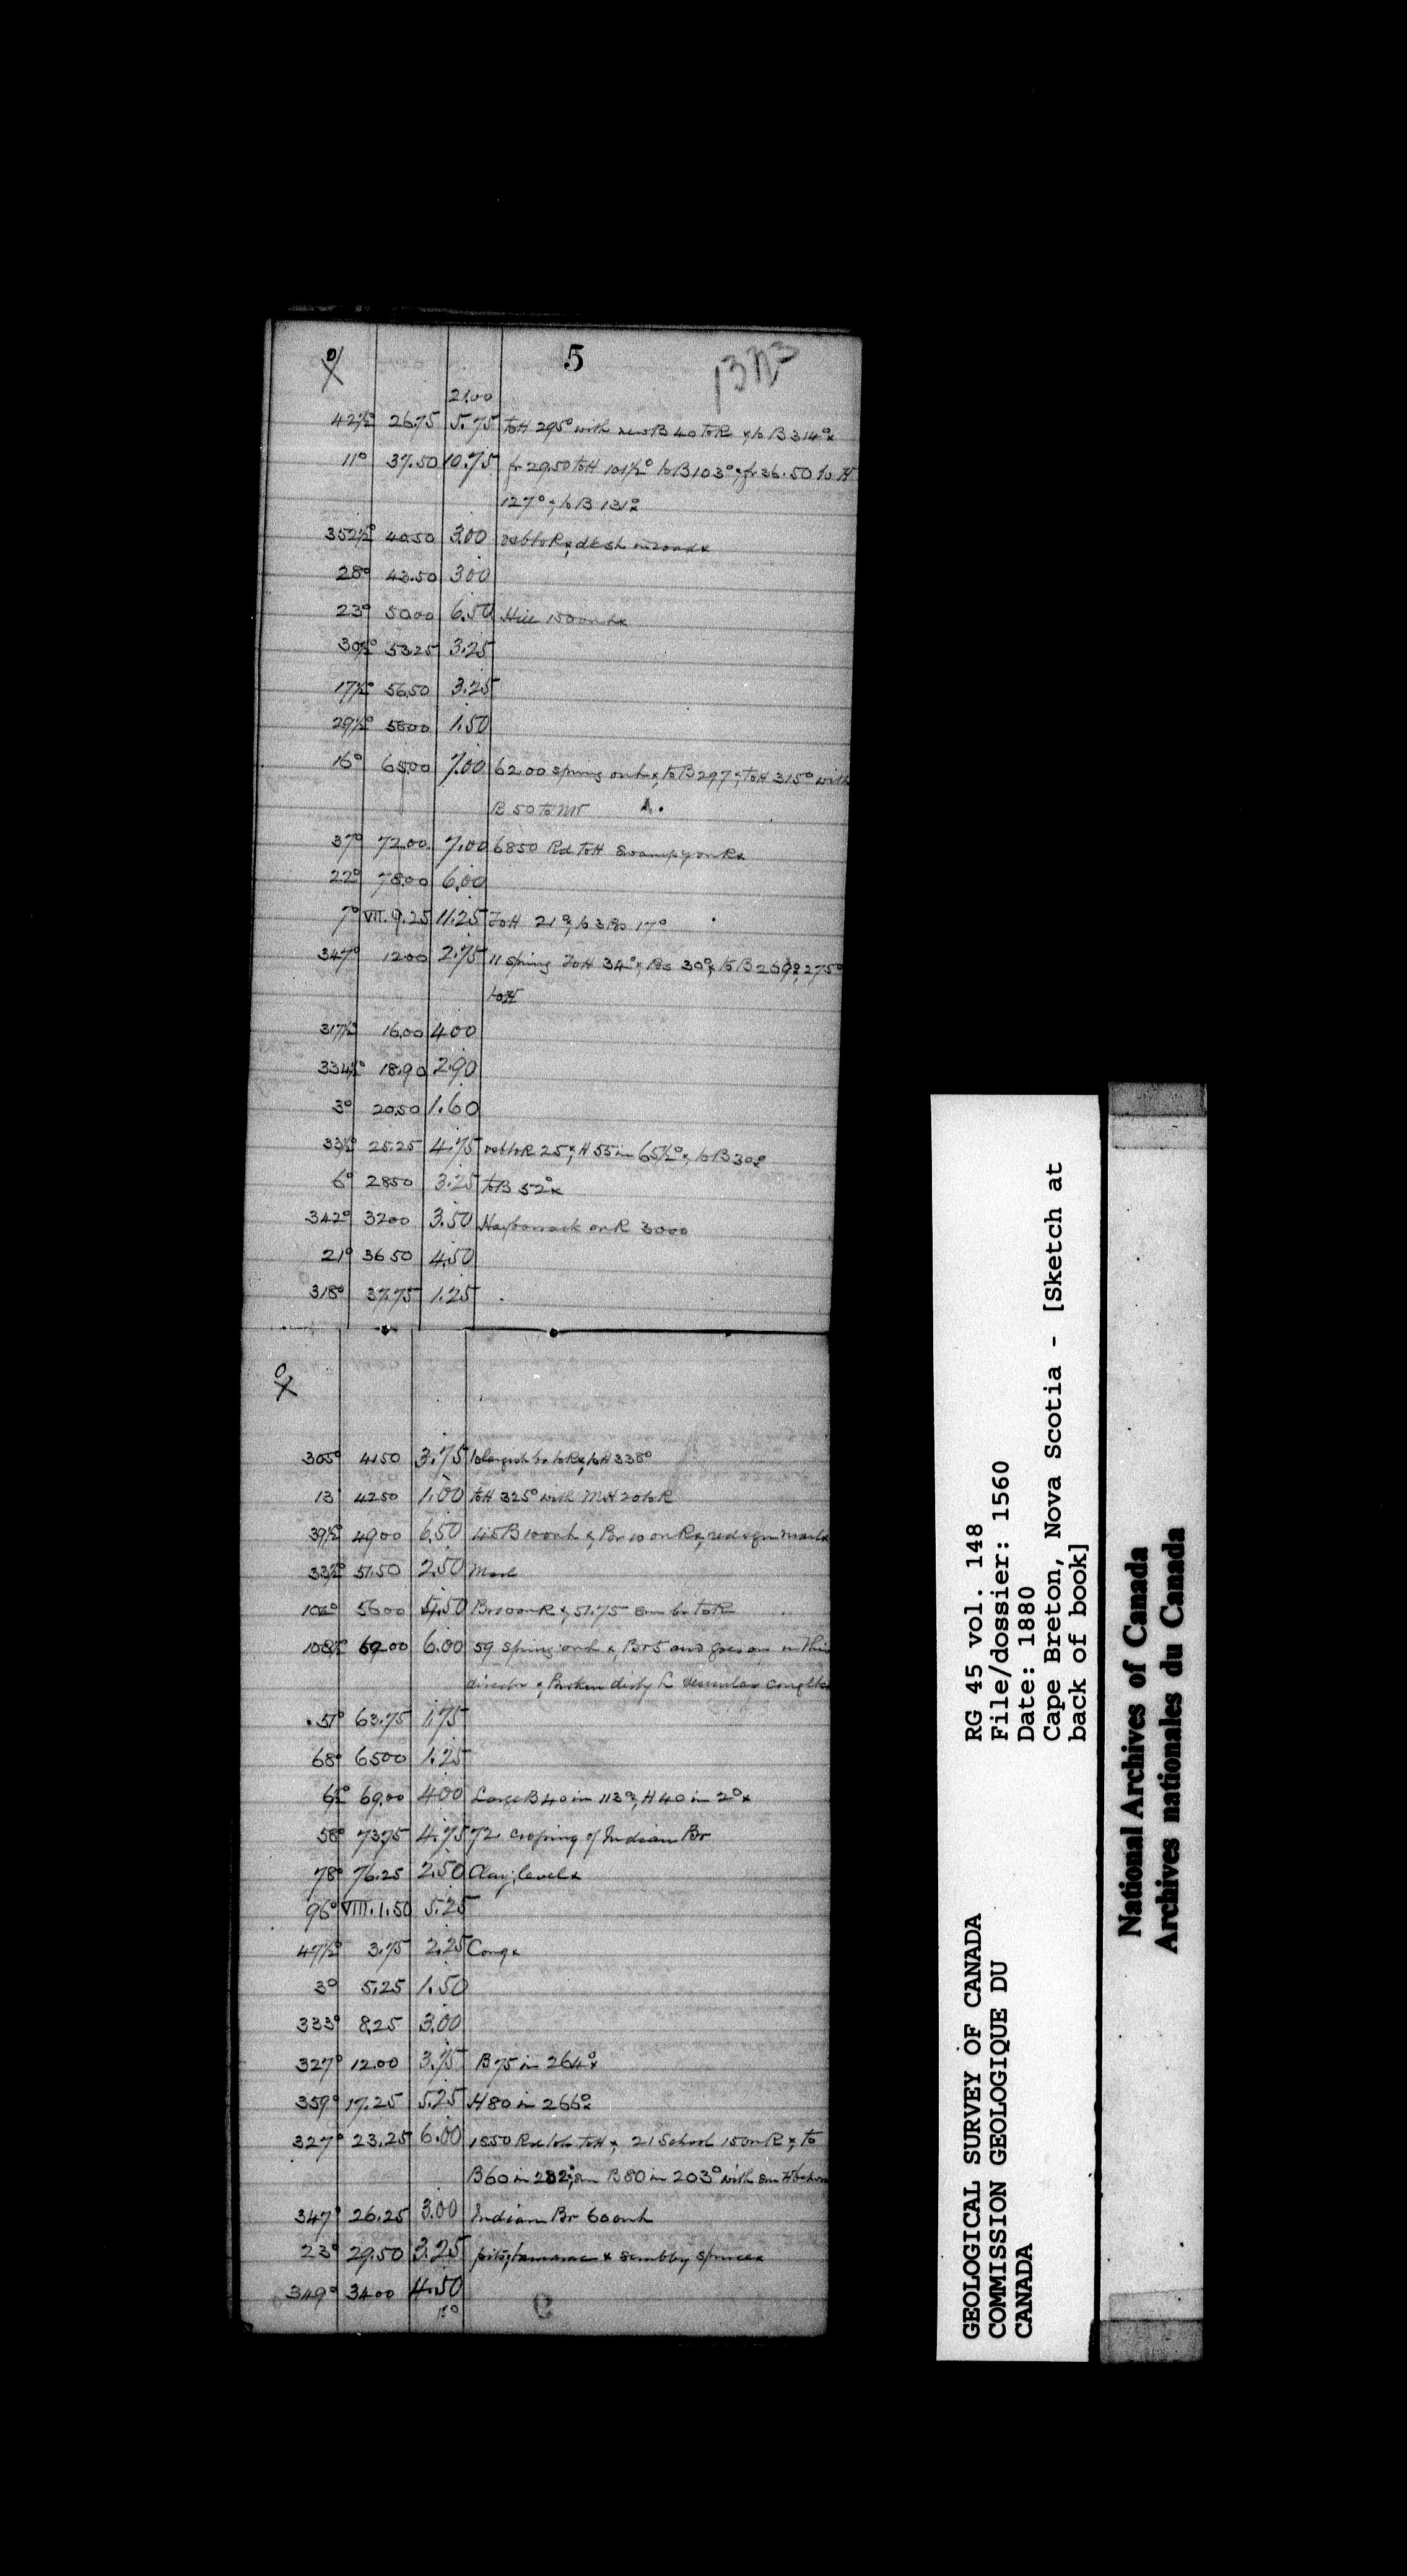 5
21.00
42½° 26.75 5.75 to H 295° with new B 40 to R & to B 314°x
11° 37.50 10.75 fr 29.50 to H 101½° to B 103° & fr 36.50 to H
127° & to B 131°x
352½° 40.50 3.00 to R & dk sh in road x
28° 43.50 3.00
23° 50.00 6.50 Hill 150 on L x
30½° 53.25 3.25
17½° 56.50 3.25
29½° 58.00 1.50
16° 65.00 7.00 62.00 spring on L x, to B 297 & to H 315° with
B 50 to
37° 72.00 7.00 6850 Rd to H Swampy on R x
22° 78.00 6.00
7° VII. 9.25 11.25 To H 21° & to 3 Bs 17°
347° 12.00 2.75 11 spring To H 34° & Bs 30° & to B 275°
to H
317½ 16.00 4.00
334½° 18.90 2.90
3° 20.50 1.60
33½ 25.25 4.75 to R 25 x, H 55 in 65½° x, to B 30°x
6° 28.50 3.25 to B 52°x
342° 32.00 3.50 Haybarrack on R 3000
21° 36.50 4.50
318° 37.75 1.25
305° 41.50 3.75 to R x, to H 338°
13 42.50 1.00 to H 325° with MH 20 to R
39½° 49.00 6.50 45 B 100 on L & Br 10 on R x, red marl x
33½° 51.50 2.50 Marl
102° 56.00 4.50 Br 100 on R & 51.75 sm br to R
108½ 62.00 6.00 59 spring on L x, Br 5 and goes on in this
direction & Broken dirty L vesicular
51° 63.75 1.75
68° 65.00 1.25
6½° 69.00 4.00 Large B 40 in 113°x, H 40 in 2°x
58° 73.75 4.75 72 crossing of Indian Br
78° 76.25 2.50 Clay, level x
96° VIII. 1.50 5.25
47½° 3.75 2.25 Cong x
3° 5.25 1.50
333° 8.25 3.00
327° 12.00 3.75 B 75 in 264°x
359° 17.25 5.25 H 80 in 266°x
327° 23.25 6.00 1850 Rd to H x, 21 School 150 on R x, to
B 60 in 282°, sm B 80 in 203° with sm H
347° 26.25 3.00 Indian Br 60 on L
23° 29.50 3.25 pits, tamarac & scrubby spruce x
349° 34.00 4.50
RG 45 vol. 148
File/dossier: 1560
Date: 1880
Cape Breton, Nova Scotia - [Sketch at
back of book]
GEOLOGICAL SURVEY OF CANADA
COMMISSION GEOLOGIQUE DU
CANADA
National Archives of Canada
Archives nationales du Canada